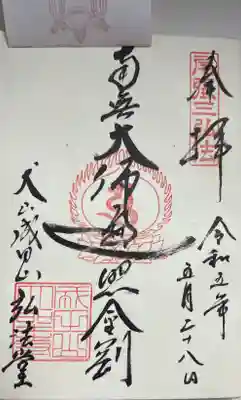 奉拝
令和五年
五月二十八日
南無大師遍照金剛
犬山成田山 弘法堂